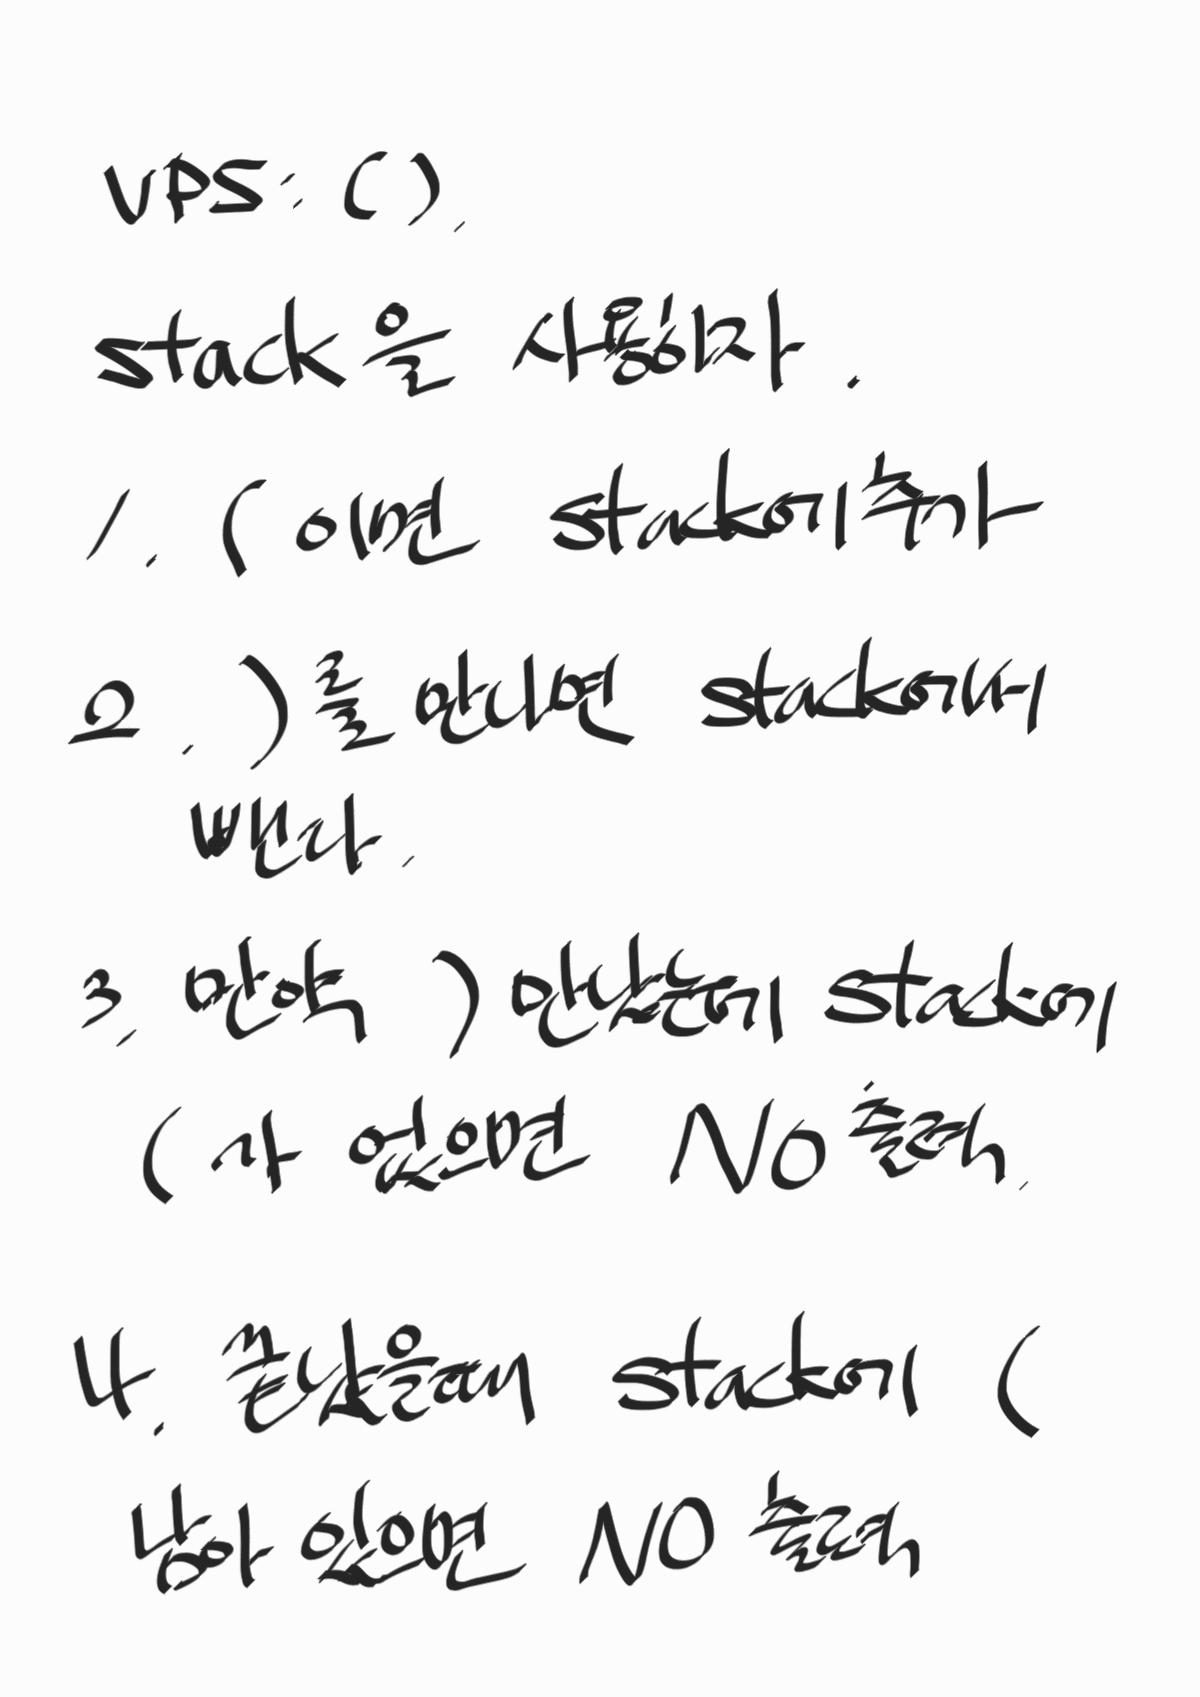 VPS: ().
stack을 사용하자.
1. ( 이면 stack에 추가
2. )를 만나면 stack에서
뺀다.
3. 만약 ) 만났는데 stack에
( 가 없으면 NO 출력.
4. 끝났을때 stack에 (
남아 있으면 NO 출력